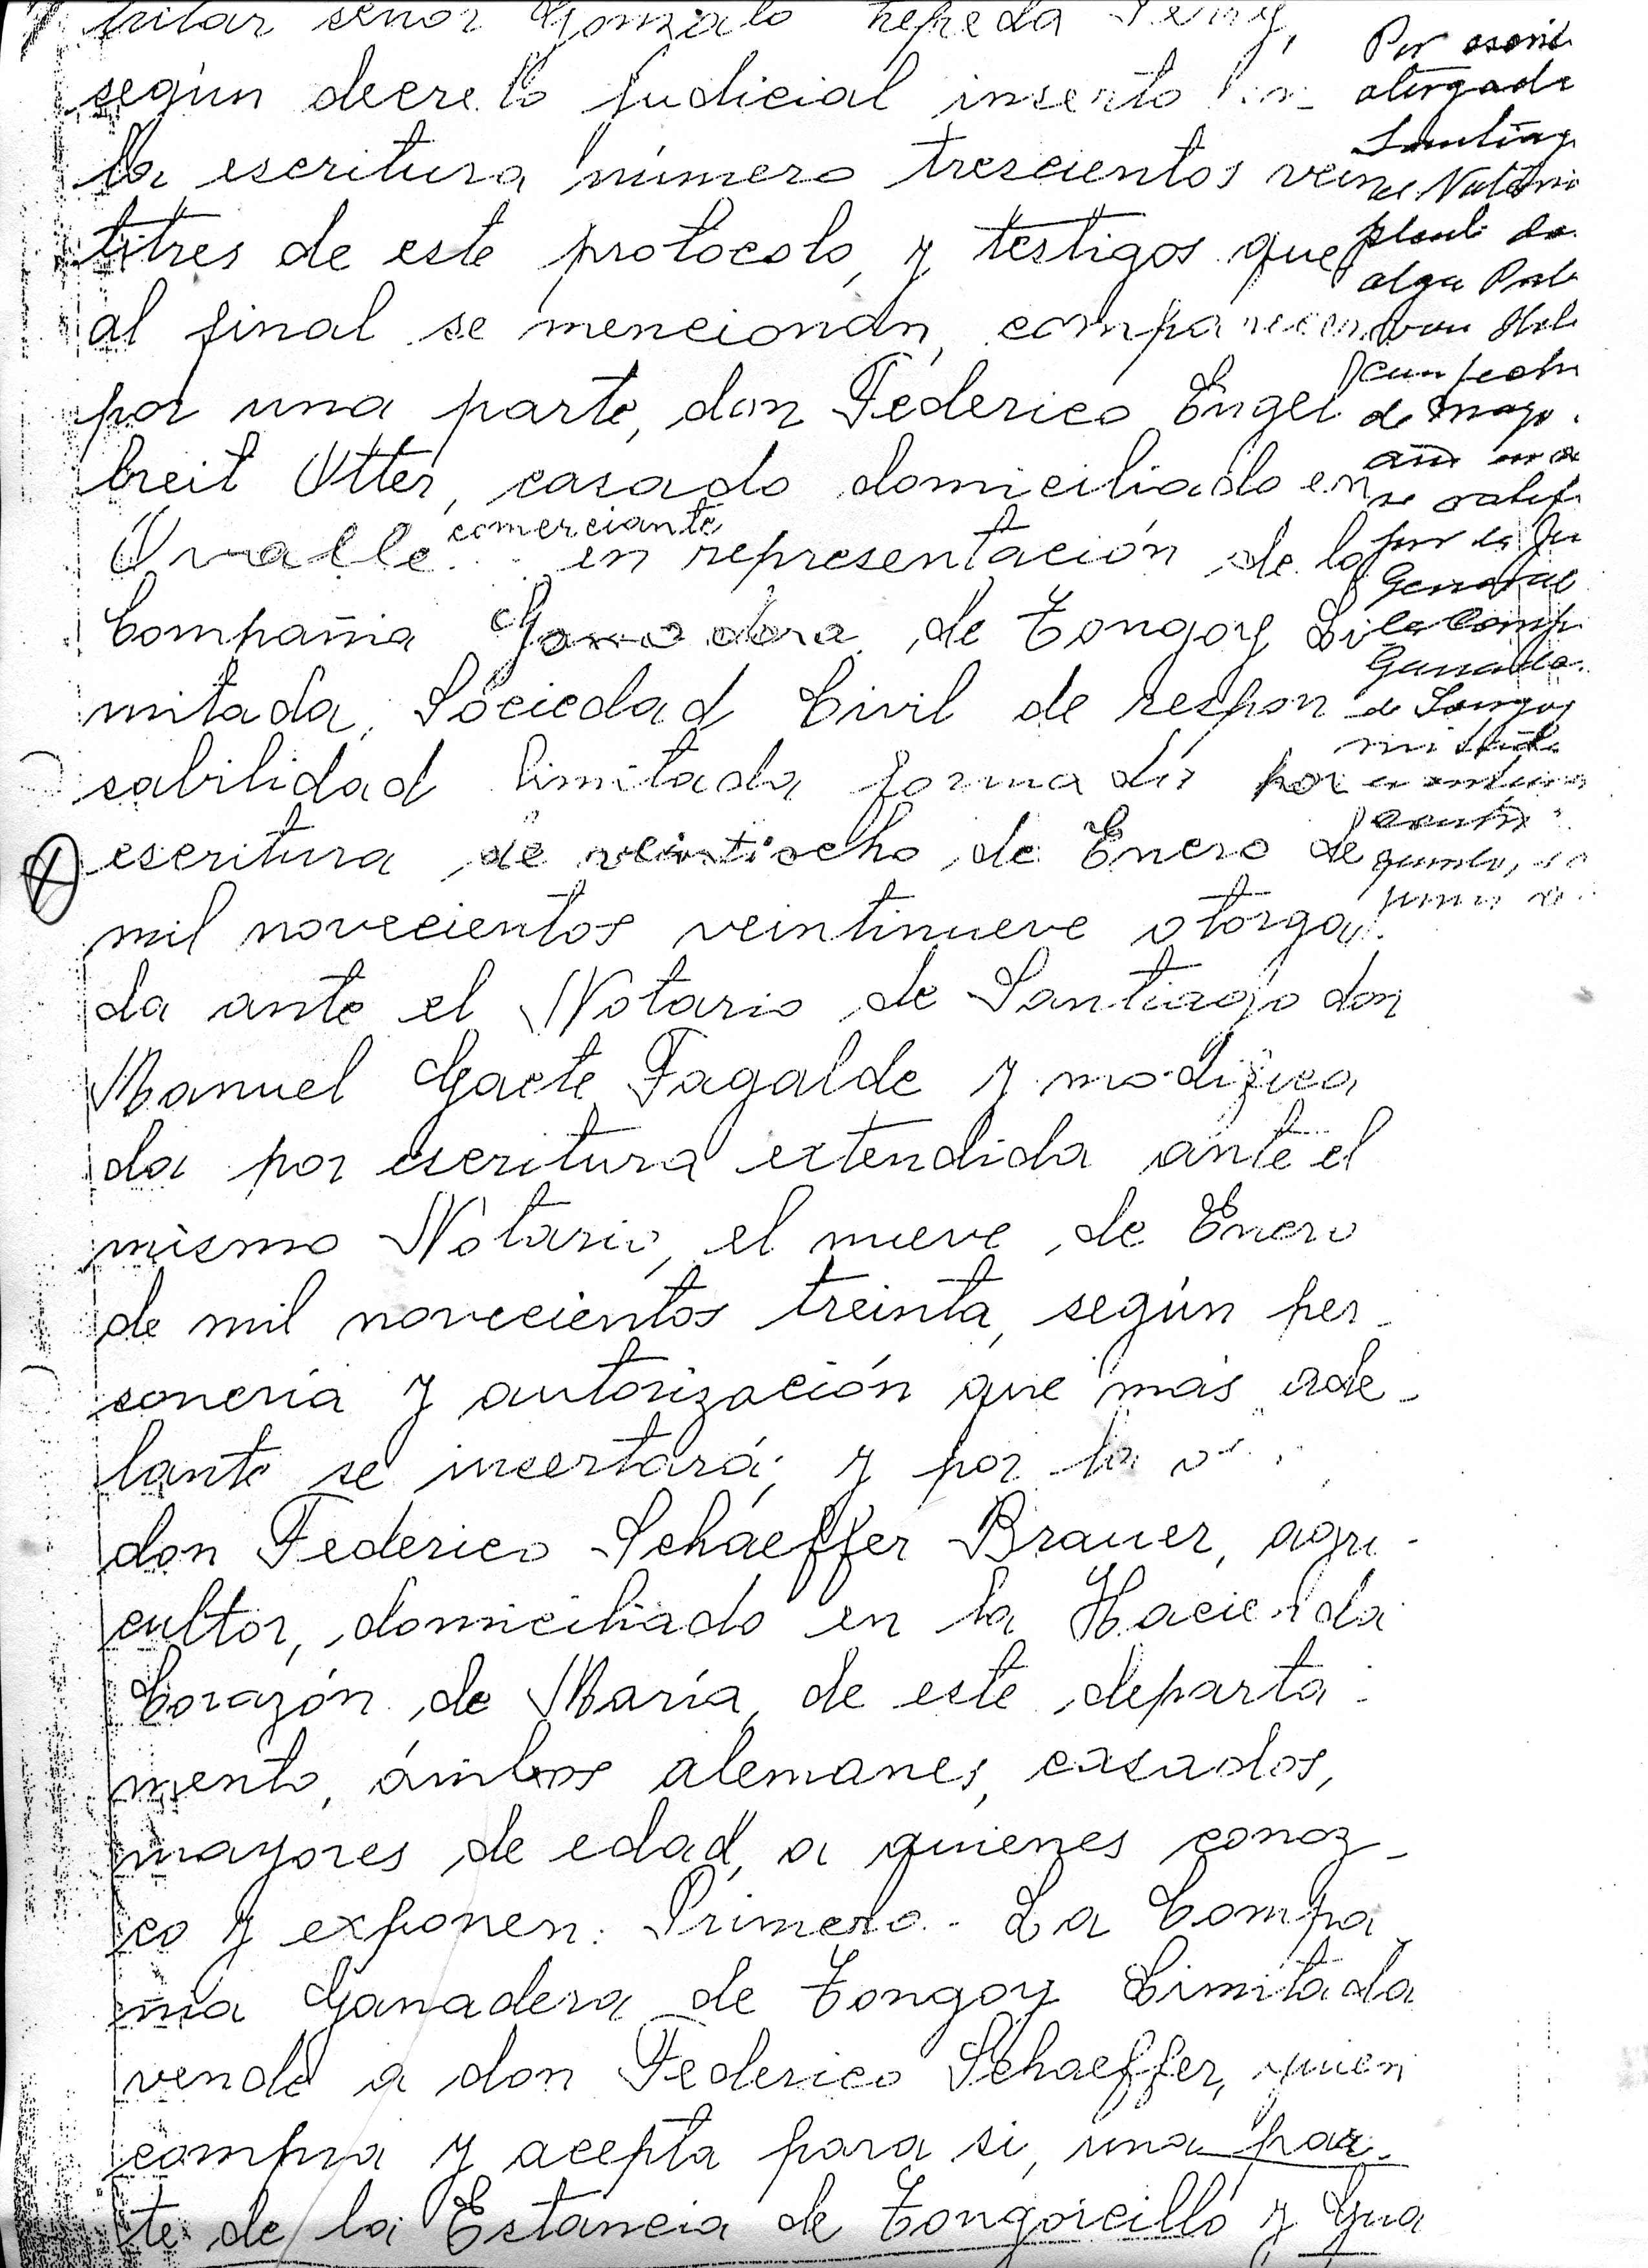 tular señor Gonzalo Zepeda Perry,
según decreto judicial inserto en
la escritura número trescientos vein
titres de este protocolo, y testigos que
al final se mencionan, comparecen
por una parte, don Federico Engel
breit Otter, casado domiciliado en
comerciante
Ovalle en representación de la
Compañia Ganadera de Tongoy Li
mitada, Sociedad Civil de respon
sabilidad limitada formada por
escritura de veintiocho de Enero de
mil novecientos veintinueve otorga
da ante el Notario de Santiago don
Manuel Gaete Fagalde y modifica
da por escritura extendida ante el
mismo Notario, el nueve de Enero
de mil novecientos treinta, según per-
soneria y autorización que más ade-
lante se incertará; y por la
don Federico Schaeffer Brauer, agri-
cultor, domiciliado en la Hacienda
Corazón de María, de este departa-
mento, ámbos alemanes, casados,
mayores de edad, a quienes conoz-
co y exponen: Primero.- La Compa
ñia Ganadera de Tongoy Limitada
vende a don Federico Schaeffer, quien
compra y acepta para si, una par-
te de la Estancia de Tongoicillo y Gua
Por
otorgada
Santiag
Notario
de mayo
por la Ju
General
la Comp
Ganadera
de Tongoy